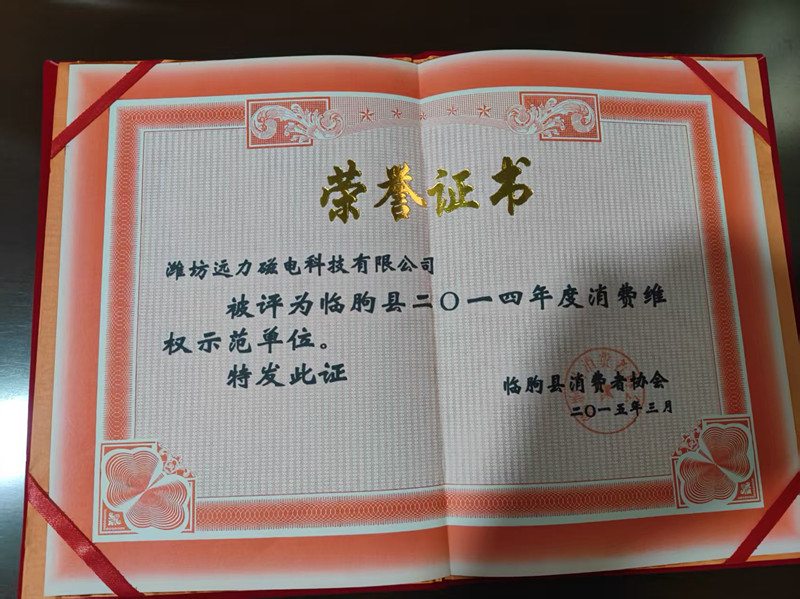 荣誉证书
潍坊远力磁电科技有限公司
被评为临朐县二〇一四年度消费维
权示范单位。
特发此证
临朐县消费者协会
二〇一五年三月